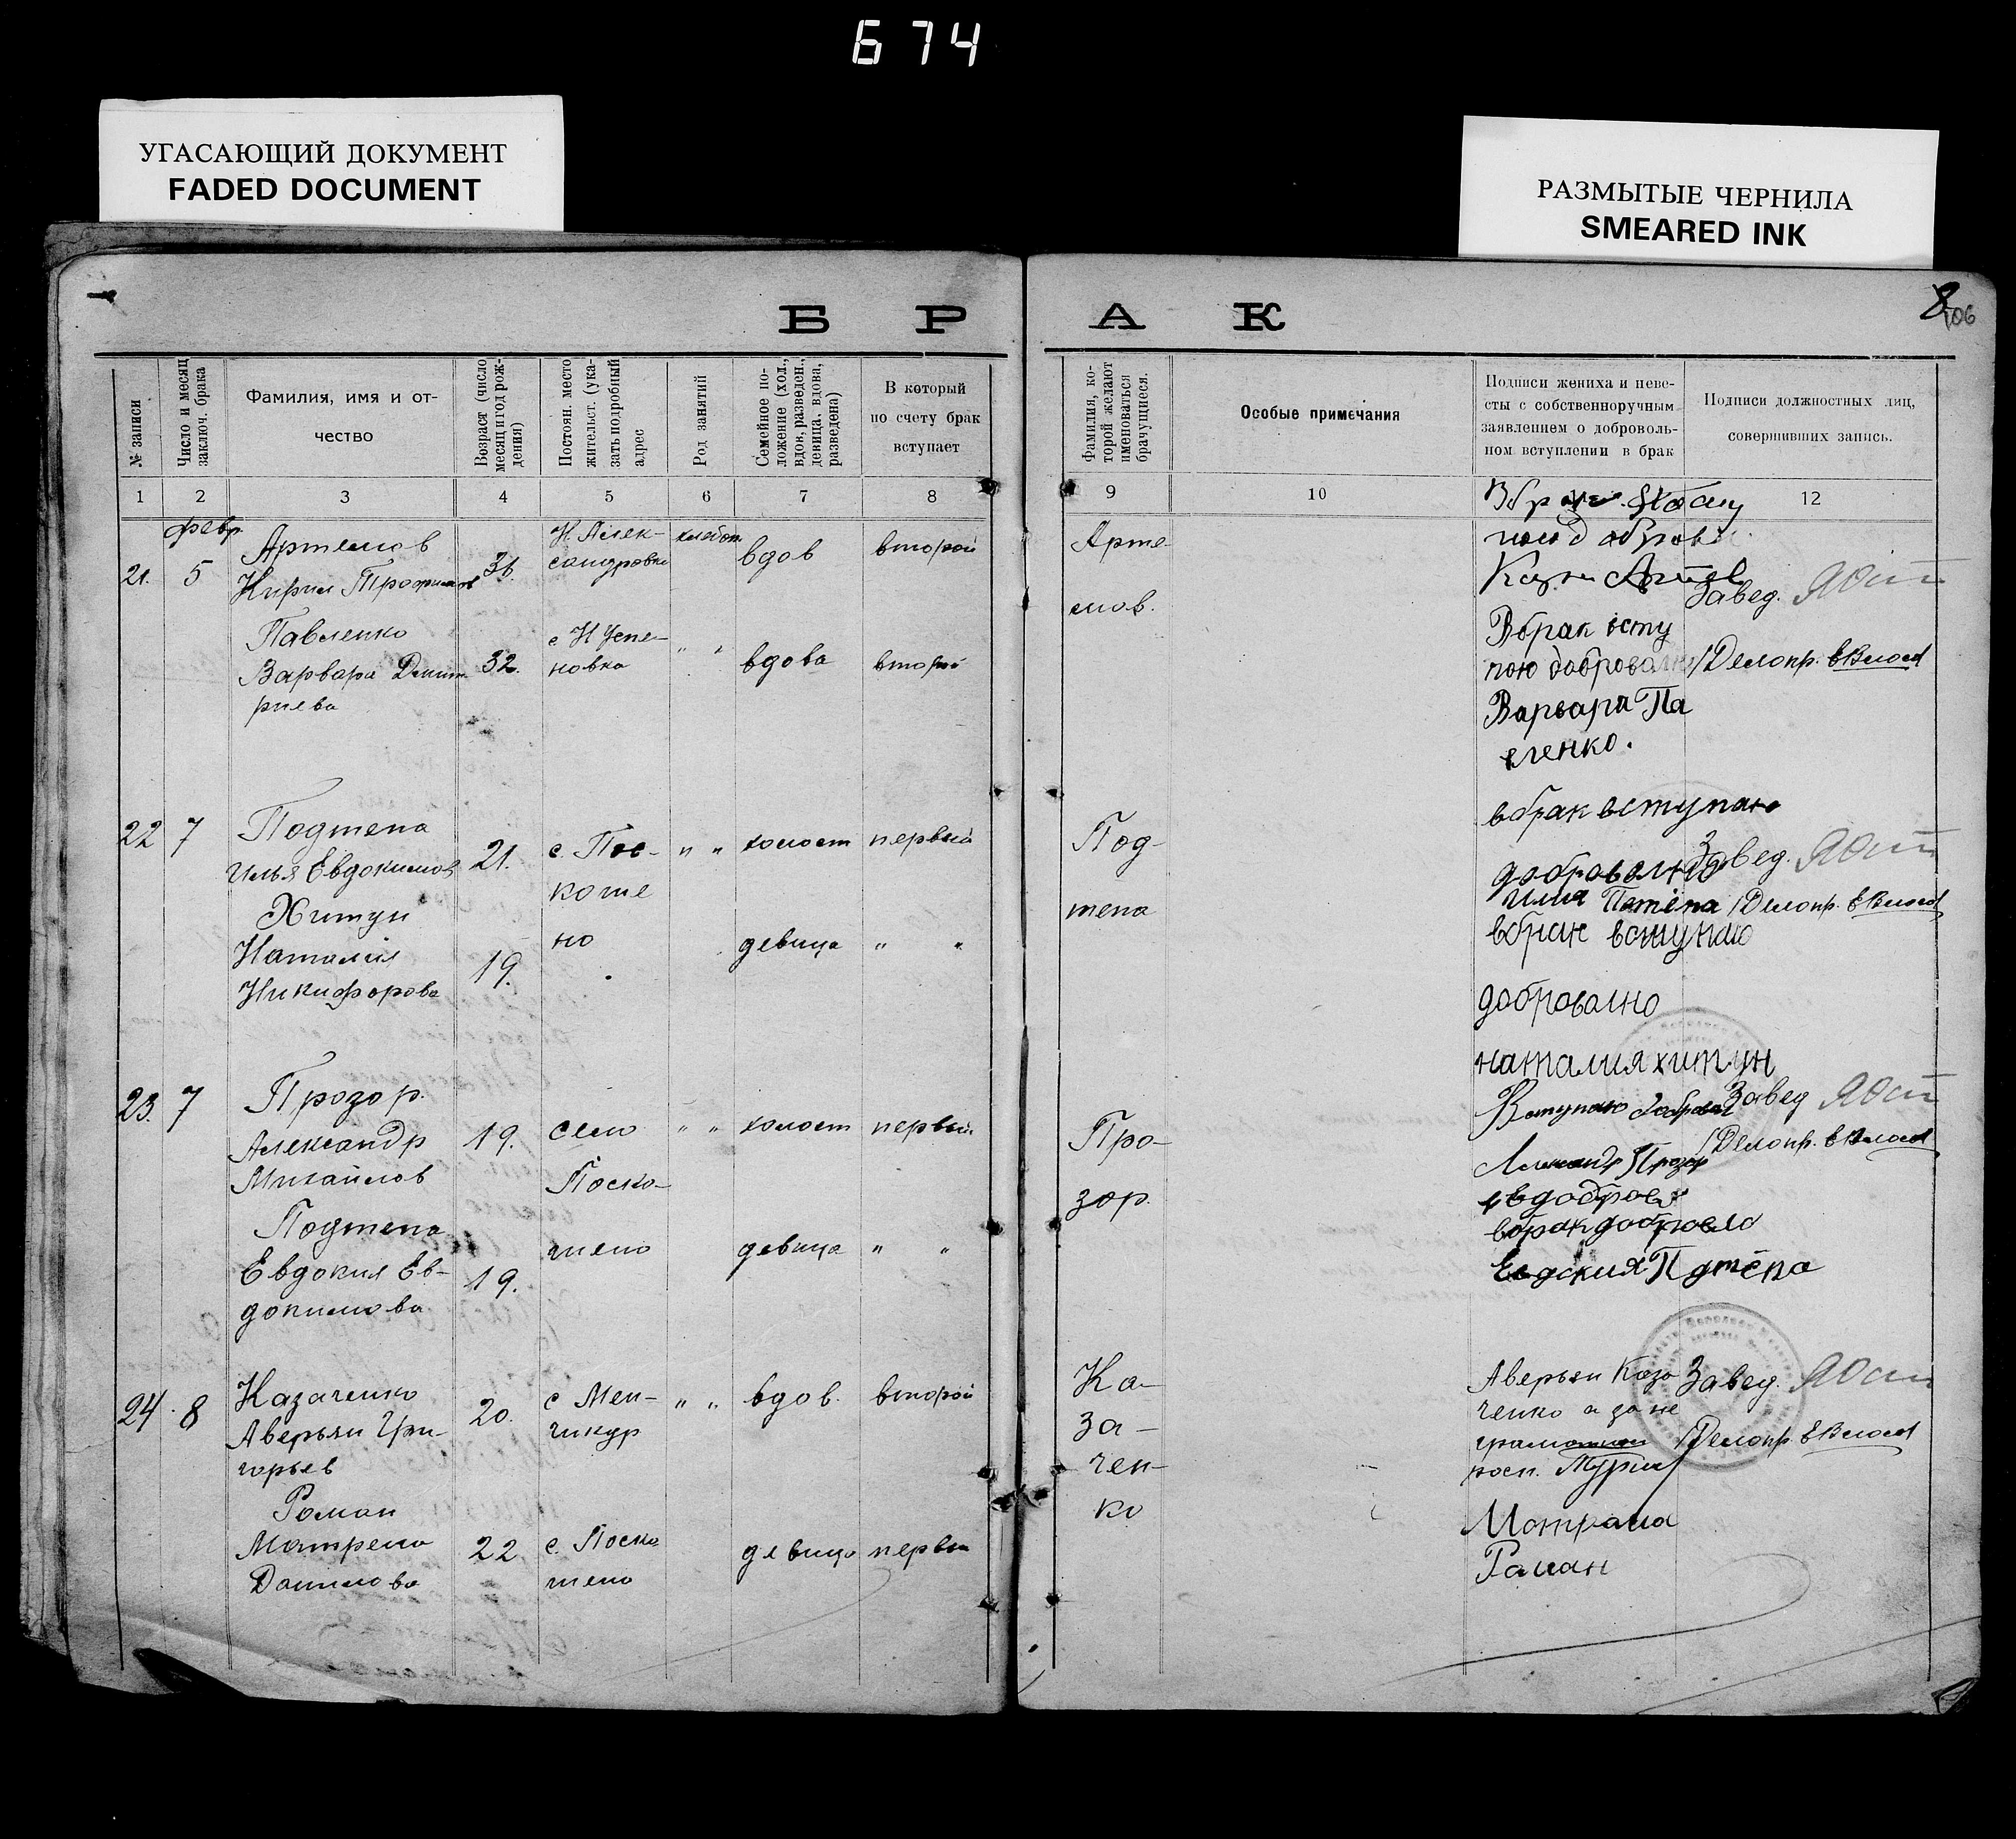 674
УГАСАЮЩИЙ ДОКУМЕНТ
FADED DOCUMENT
РАЗМЫТЫЕ ЧЕРНИЛА
SMEARED INK
8
106
Б Р А К
№ записи
Число и месяц
заключ. брака
Фамилия, имя и от-
чество
Возраст (число
месяц и год рож-
дения)
Постоян. место
жительст. (ука-
зать подробный
адрес
Род занятий
Семейное по-
ложение (хол.,
вдов, разведен.,
девица, вдова,
разведена)
В который
по счету брак
вступает
Фамилия, ко-
торой желают
именоваться
брачущиеся.
Особые примечания
Подписи жениха и неве-
сты с собственноручным
заявлением о доброволь-
ном вступлении в брак
Подписи должностных лиц,
совершивших запись.
1 2 3 4 5 6 7 8 9 10 12
февр
21. 5
Артемов
Кирил Трофимов
31.
Н Алек-
сандровка
хлебоп
вдов
второй
Арте-
мов.
Завед.
Павленко
Варвара Дмит
риева
32.
с Н Успе-
новка
" "
вдова
второй
Вбрак всту
пою доброволно
Варвара Па
вленко.
Делопр.
22 7
Подтепа
Илья Евдокимов
21.
с. Пос-
коше
но
" "
холост
первый
Под-
тепа
вбрак вступаю
доброволно
Илия Потепа
Завед.
Делопр.
Хитун
Наталия
Никифорова
19.
девица
" "
вбрак вступаю
доброволно
наталия хитун
23. 7
Прозор.
Александр
Михайлов
19.
село
Поско-
шено
" "
холост
первый
Про-
зор.
Вступаю
Александр Прозор
Завед
Делопр.
Подтепа
Евдокия Ев-
докимова
19.
девица
" "
Евдокия Пдтёпа
24. 8
Казаченко
Аверьян Гри-
горьев
20.
с Мен-
чикур
" "
вдов.
второй
Ка-
за-
чен-
ко
Аверьян Каза
ченко а за не
росп.
Завед.
Делопр
Роман
Матрена
Данилова
22
с. Поско
шено
девица
первы
Мотрана
Раман